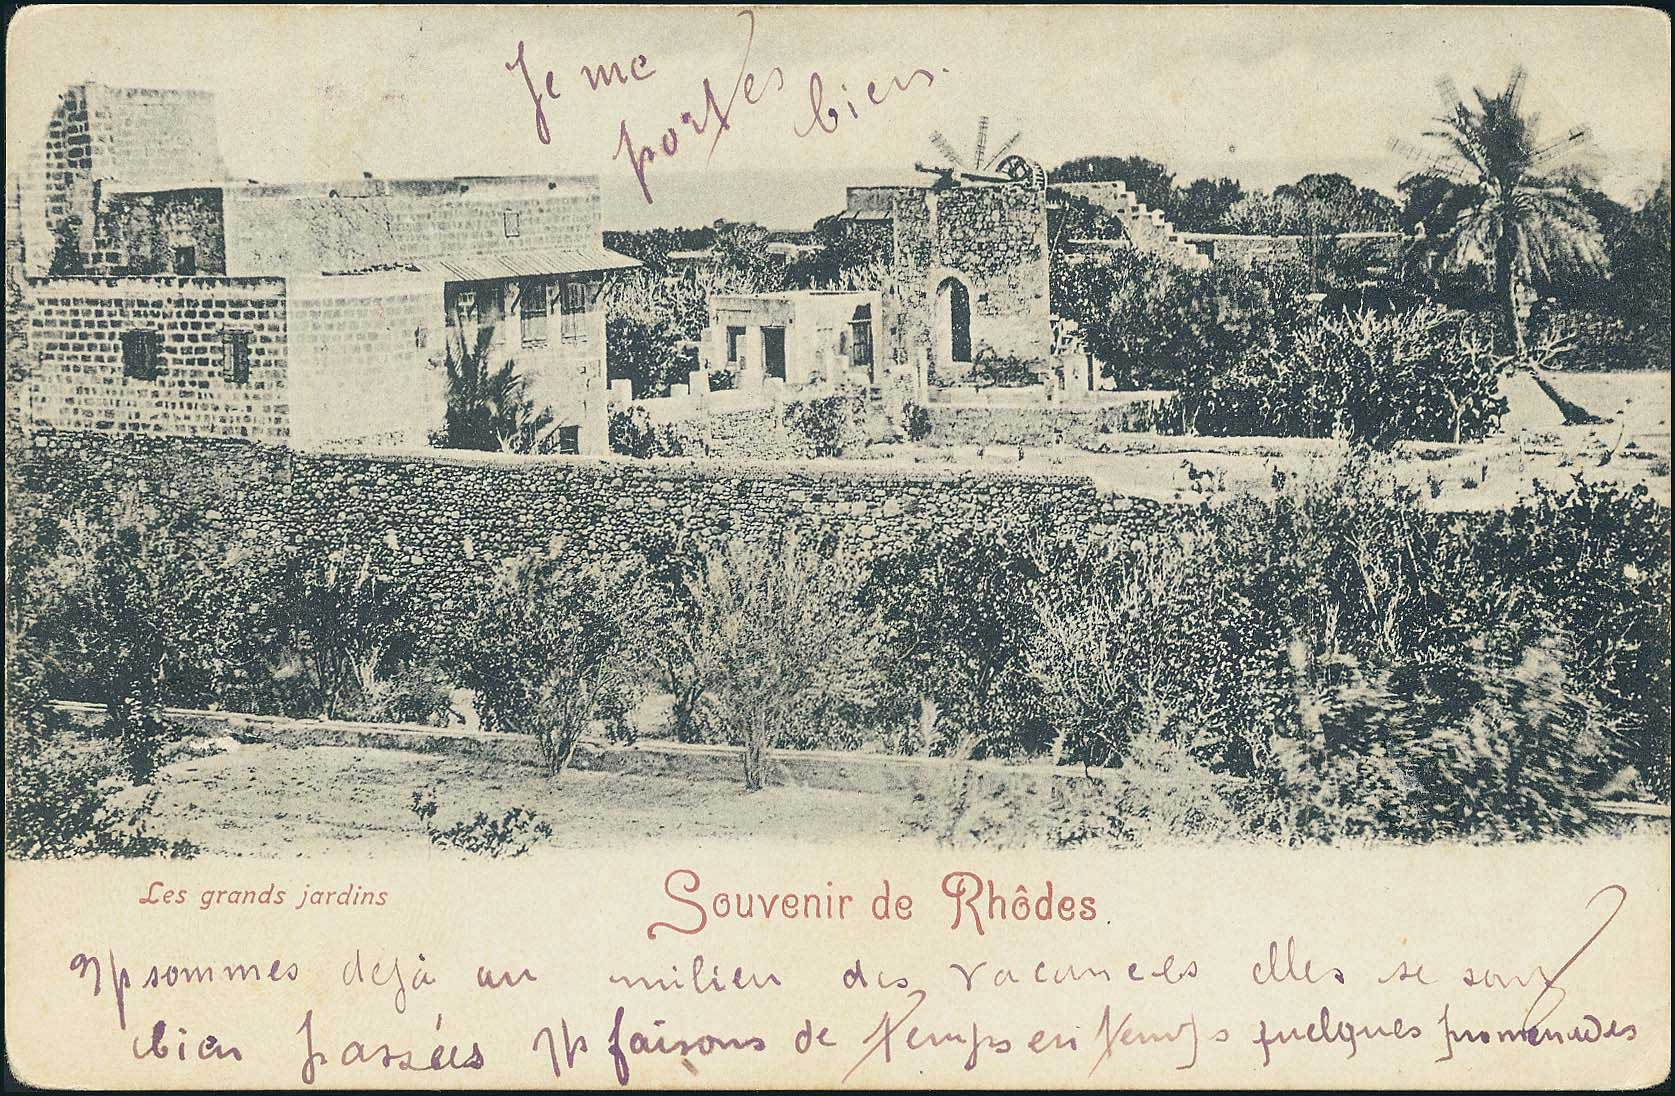 Je me
portes bien.
Les grands jardins
Souvenir de Rhôdes.
sommes déjà au milieu des vacances elles se sont
bien passées faisons de temps en temps quelques promenades